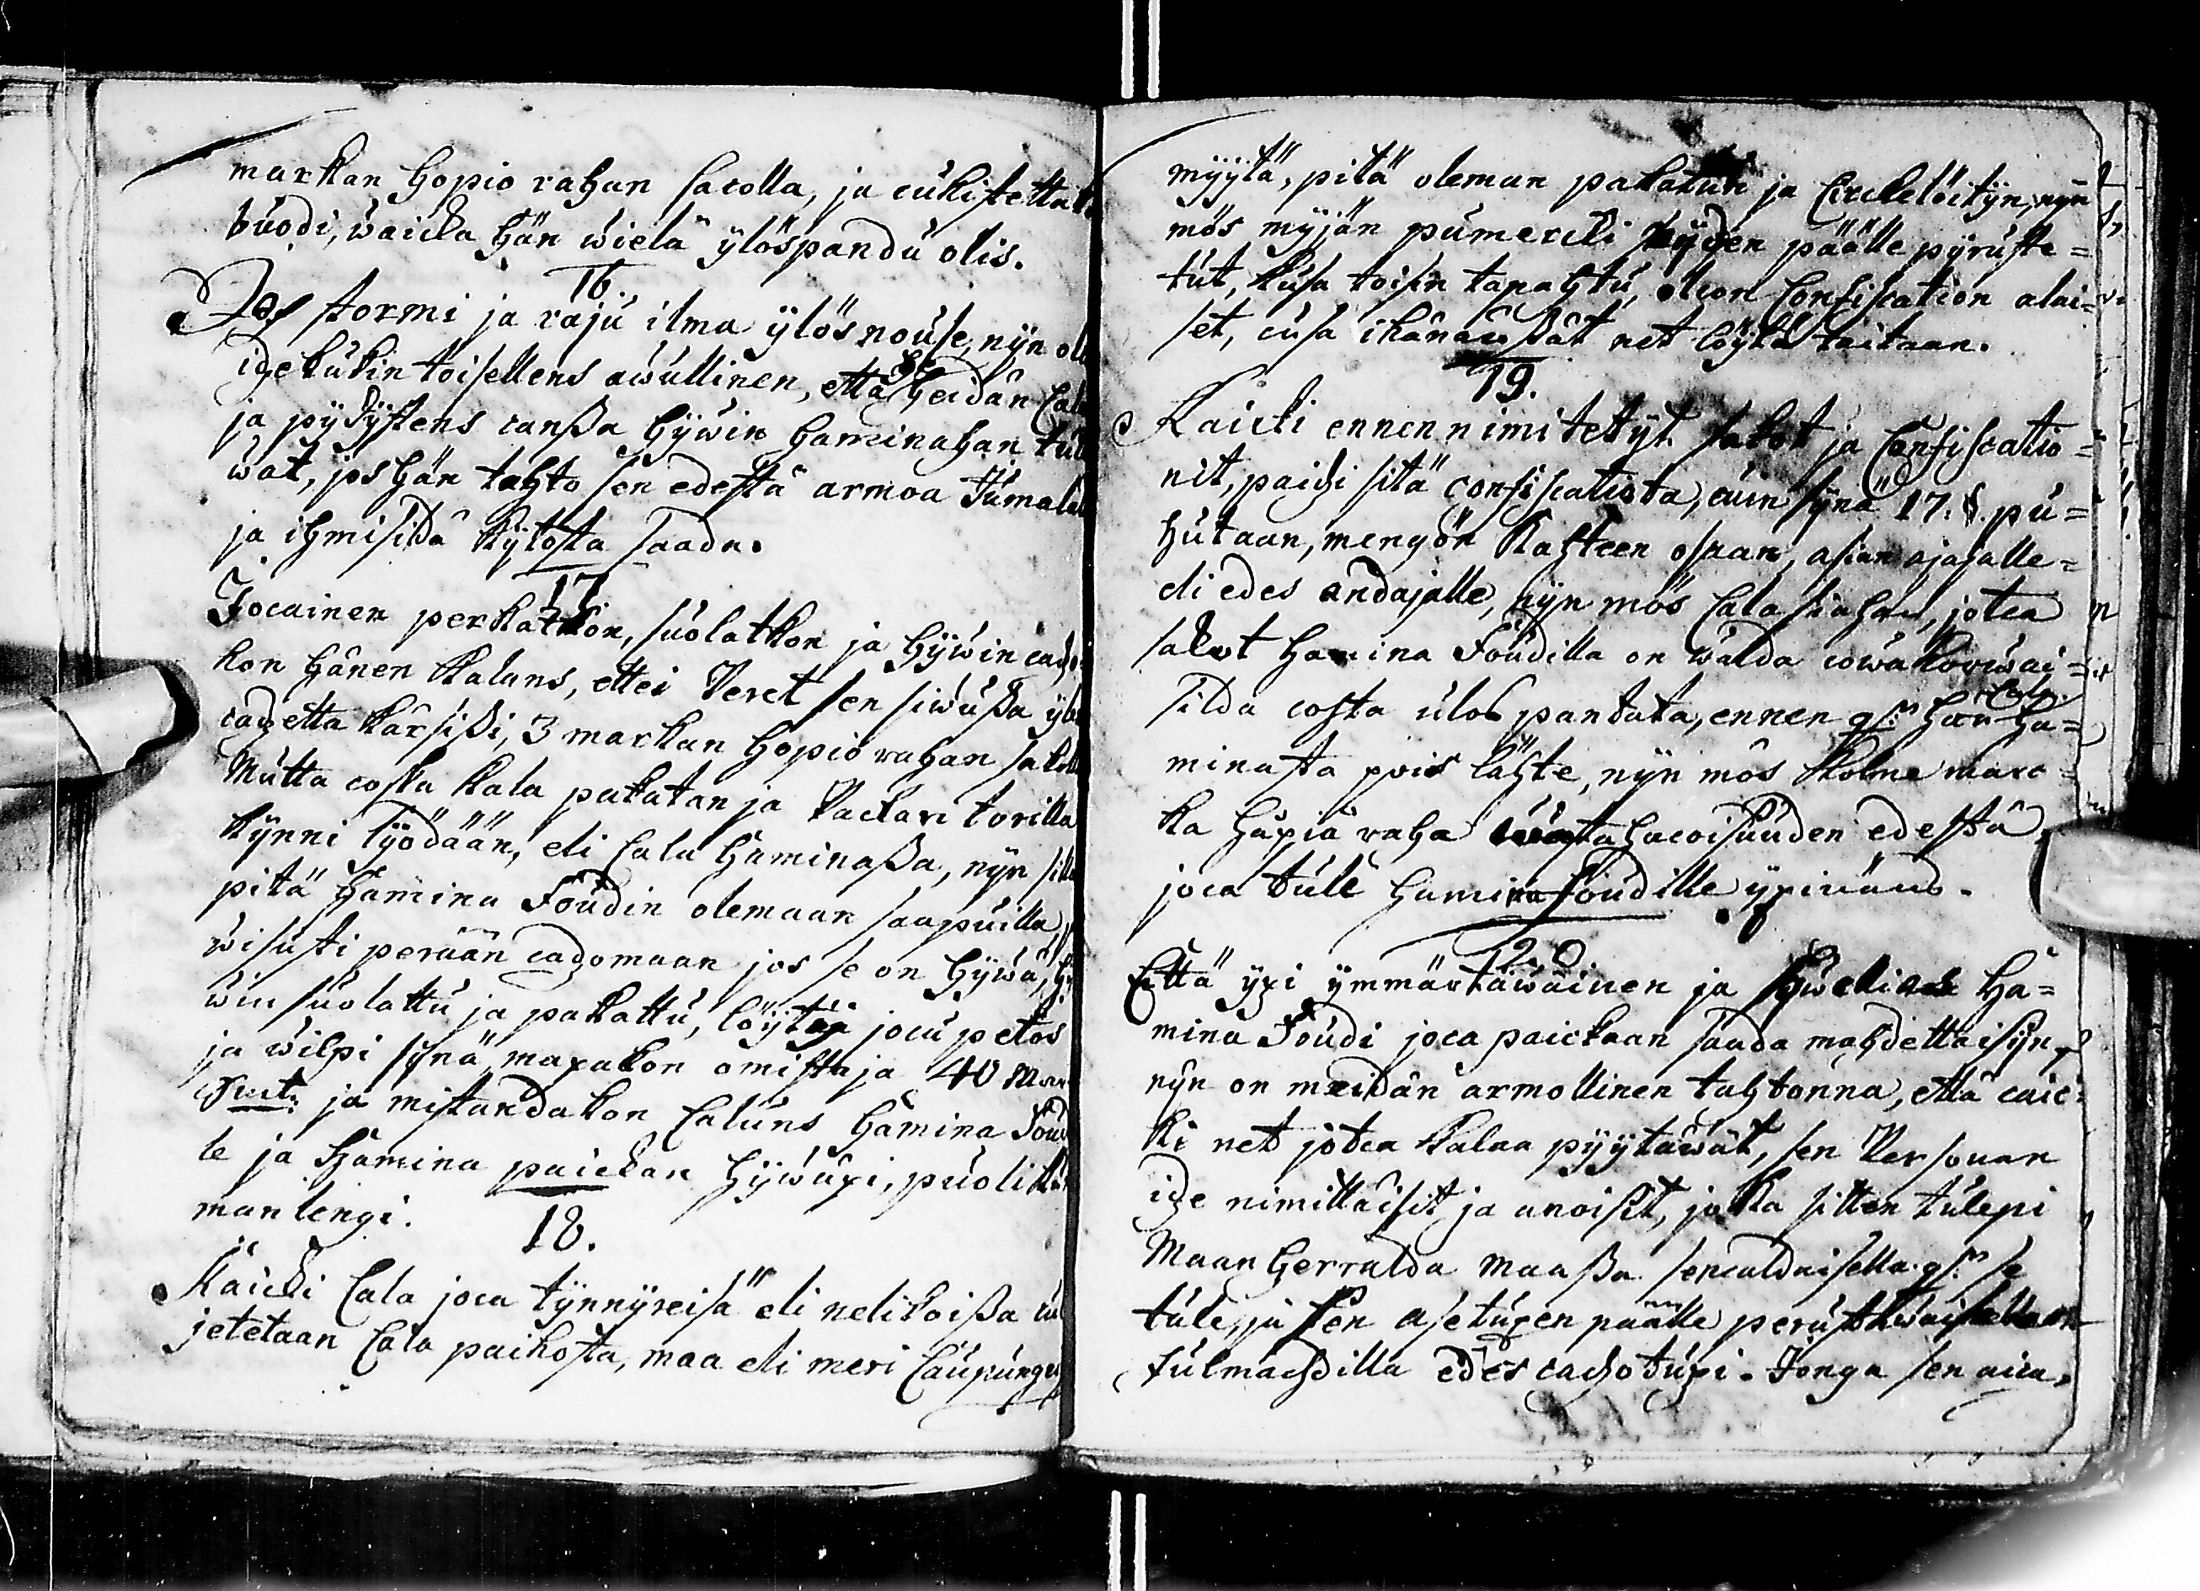 markan hopio rahan sacolla, ja cukistetta
buodi, waicka hän wielä ylöspandu olis.
16.
Jos stormi ja raju ilma ylösnouse, nyn ol
idzekukin toisellens awullinen, että he heidän Cal
ja pydystens canßa hywin haminahan tul
wat, jos hän tahto sen edestä armoa Jumalal
ja ihmisildä kytosta saada.
17
Jocainen perkatkon, suolatkon ja hywin cadzo
kon hänen kaluns, ettei Veret sen siwußa ylös
cadzetta kärsißi, 3 markan hopio rahan sacolla
Mutta coska kala pakatan ja Vackari torilla
kynni lyödään, eli Cala haminaßa, nyn silla
pitä hamina Foudin olemaan saapuilla,
wisusti perään cadzomaan jos se on hywä, hy
win suolattu ja pakattu, löytän jocu petos
ja wilpi synä, maxakon omistaja 40 Mar
Smt: ja mistandakon Caluns hamina Foud
le ja hamina paickan hywäxi, puolittu
manlengi.
18.
Kaicki Cala joca tynnyreisä eli nelikoißa cul
jetetaan Cala paikosta, maa eli meri Caupungihi
myytä, pitä oleman pakatun ja Circkelöityn, nyn
mös myjän pumercki päälle pyruste=
tut, kusa toisin tapahtu, olcon Confiscation alai=
set, cusa ikänänßät net löytä taitaan.
19.
Kaicki ennen nimitetyt sakot ja Confiscatio=
nit, paidzi sitä confiscatiota, cuin synä 17. §. pu=
hutaan, mengön kahteen osaan, asian ajajalle=
eli edes andajalle, nyn mös Cala siahan, jotca
sakot Hamina Foudilla on walda cowakorwai=
silda costa ulos pandata, ennen q:sn hän Cala Ha=
minasta pois lähte, nyn mös kolme marc=
ka hopia raha wastahacoisuuden edestä,
joca tule hamina Foudille yxinäns.
20
Että yxi ymmärtäwäinen ja Ha=
mina Foudi joca paickaan saada mahdettaisyn,
nyn on meidän armollinen tahtonna, että caic=
ki net jotca kalaa pyytäwät, sen Persouan
idze nimittäisit ja anoisit, jokka sitten tulepi
Maan herralda maaßa sencaldaisella q:sn se
tule, ja sen asetuxen päälle
tulmachdilla edes cadzotuxi. Jonga sen aica,